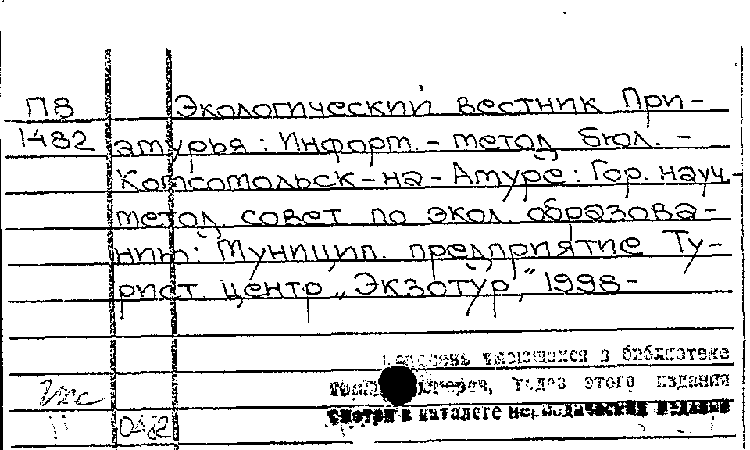 П8 Экологический вестник При-
1482 амурья: Информ.-метод. бюл. -
Комсомольск-на-Амуре: Гор. науч.-
метод. совет по экол. образова-
нию: Муницип. предприятие Ту-
рист. центр „Экзотур”, 1998-
имеющихся в библиотеке
томов, годов этого издания
смотри в каталоге периодических изданий